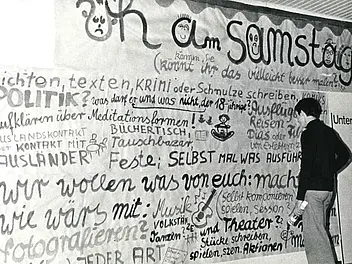 h am samstag
könnt ihr das vielleicht besser malen?
ichten, texten, KRIMI oder Schnulze schreiben,
POLITIK? was darf er und was nicht, der 18-jährige? Ausflüge
aufklären über Meditationsformen! Reisen
AUSLANDSKONTAKT BÜCHERTISCH, Dias oder
KONTAKT MIT Tauschbazar,
AUSLÄNDER Feste; SELBST MAL WAS AUSFÜH
wir wollen was von euch: mach
Selbst komponieren
wie wärs mit: Musik spielen, Session
VOLKSTANZ und Theater?
fotografieren? Tanzen Stücke schreiben,
JEDER ART spielen, szen. Aktionen!
Unter